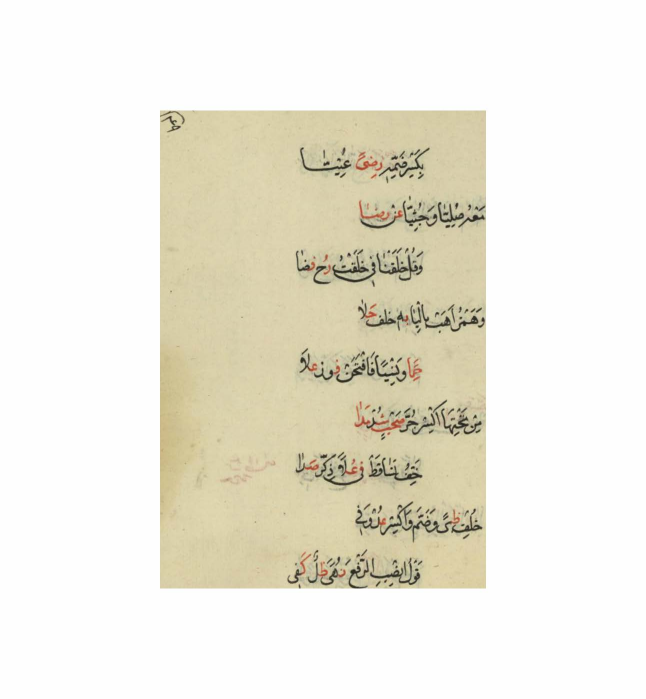 بكسر ضمه رضى عتيا
معه صليا وجثيا عن رضا
وقل خلقنا في خلقت رح فضا
وهمز اهب باليا به خلف حلا
حما ونسيا فافتحن فوز علا
من تحتها اكسر جر صحب شذ مدا
خف تساقط في علا ذكر صدا
خلف ظبى وضم واكسر عد وفي
قول انصب الرفع نهى ظل كفي